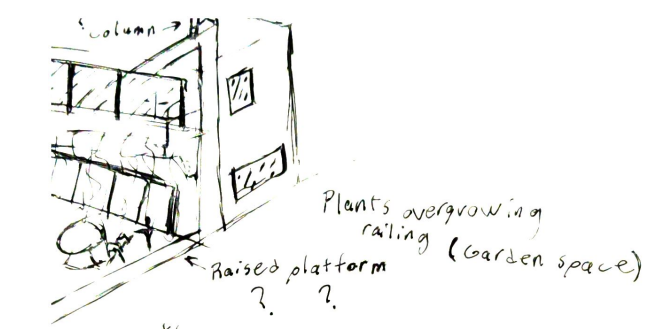 Column →
Plants overgrowing
railing (Garden space)
Raised platform
? ?